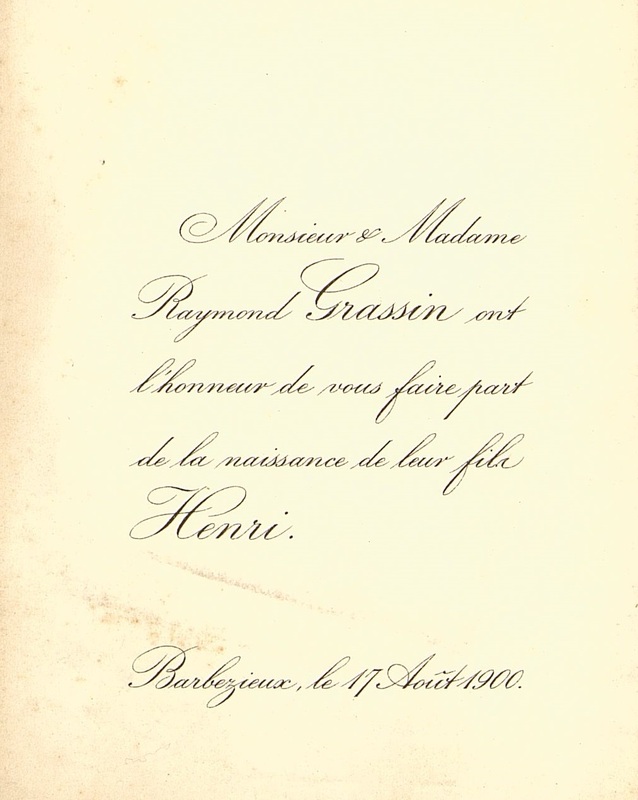 Monsieur & Madame
Raymond Grassin ont
l'honneur de vous faire part
de la naissance de leur fils
Henri.
Barbezieux, le 17 Août 1900.